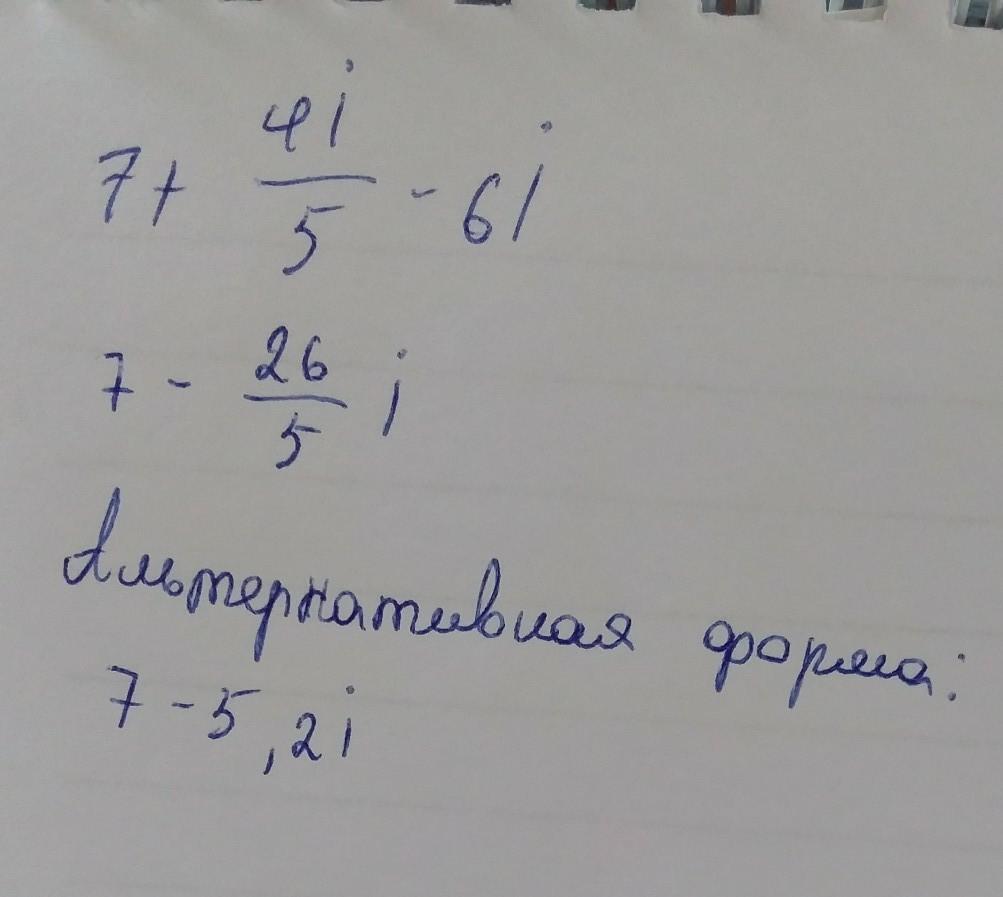 7 + 4i/5 - 6i
7 - 26/5 i
Альтернативная форма:
7 - 5,2i